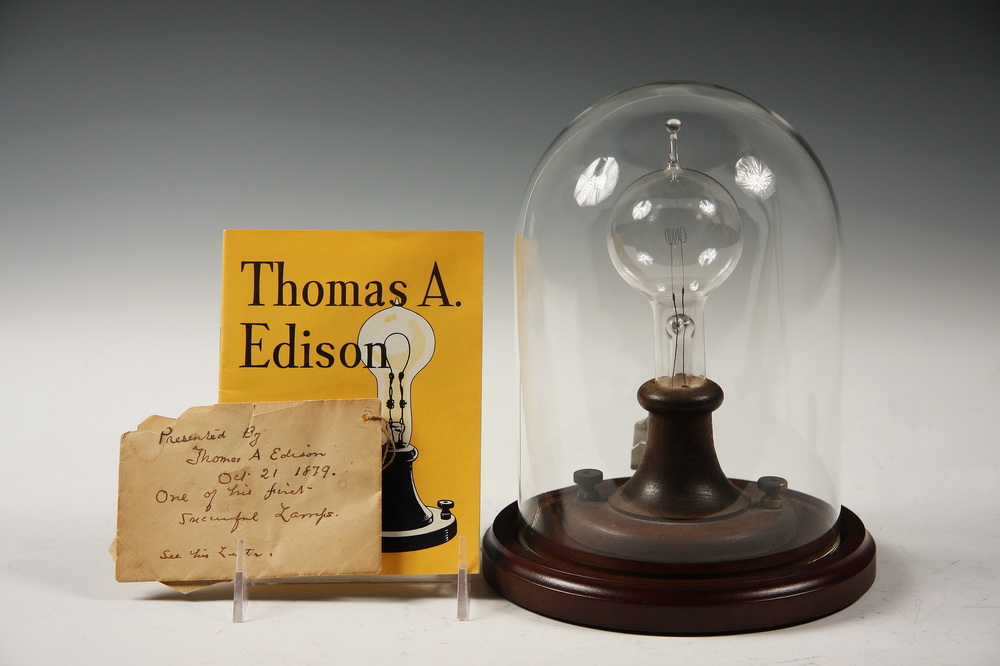 Thomas A.
Edison
Presented By
Thomas A Edison
Oct 21 1879.
One of his first
Successful Lamps.
See his